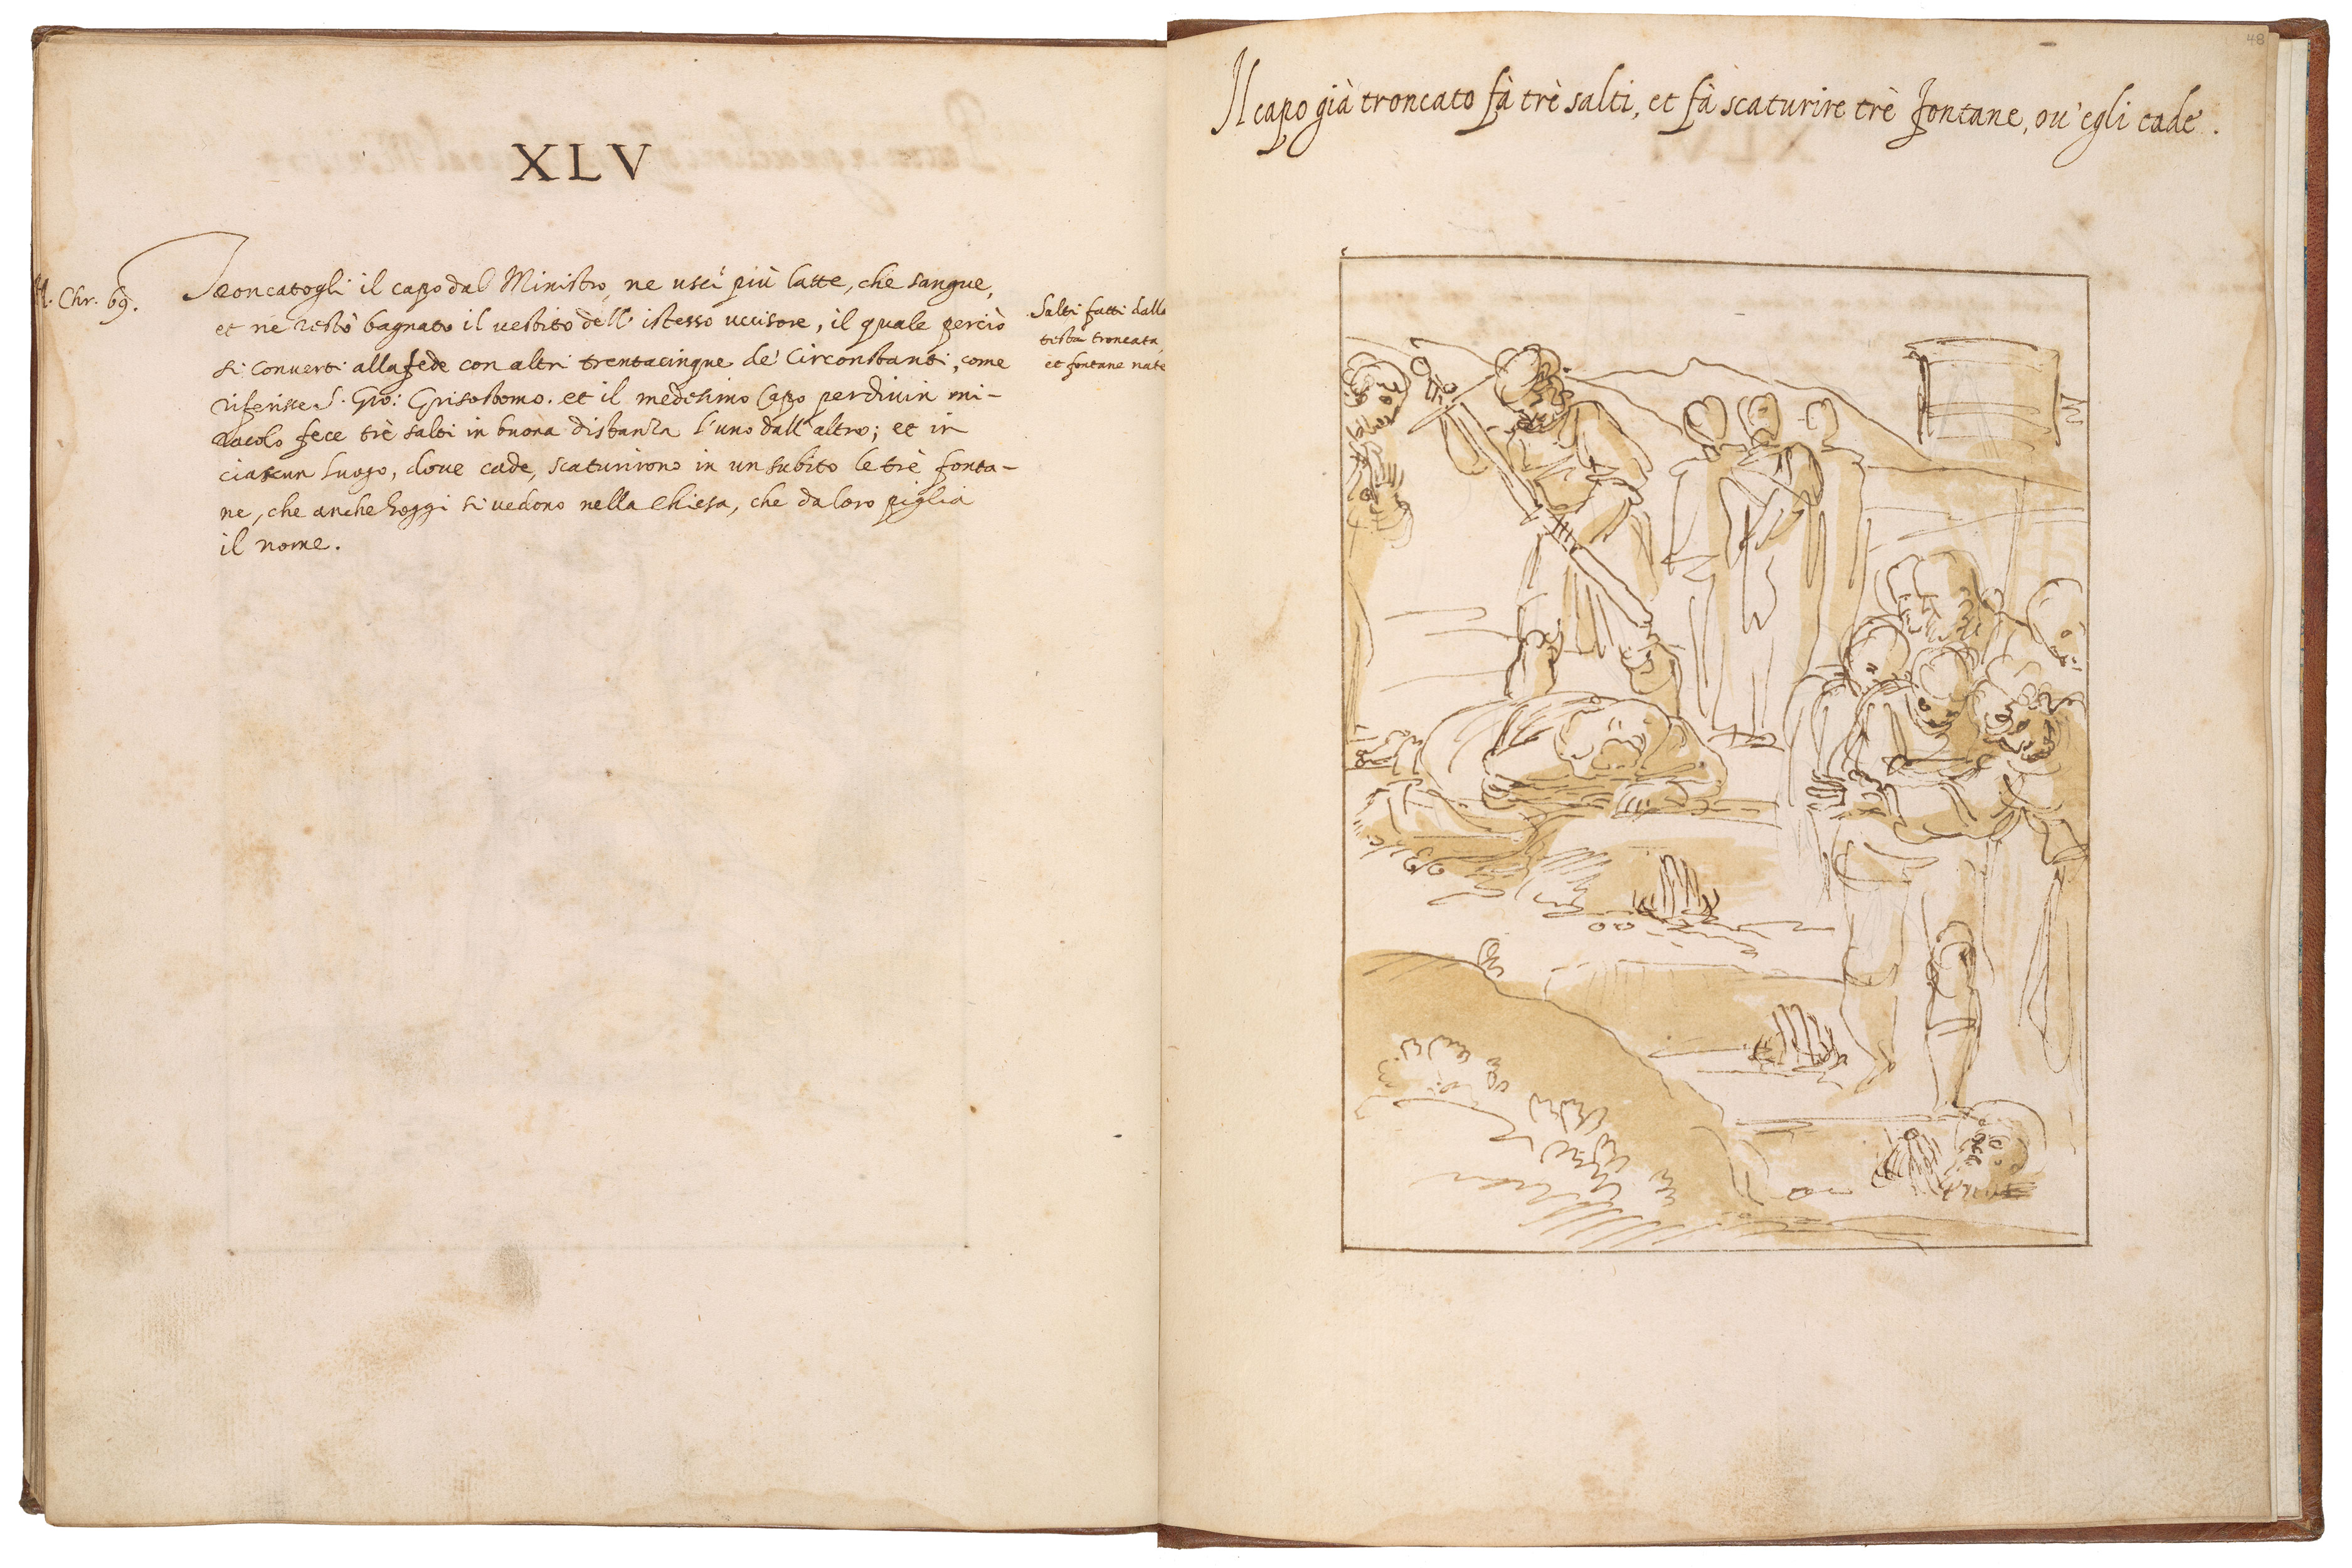 XLV
A. Chr. 69.
Troncatogli il capo dal Ministro, ne uscì più latte, che sangue,
et ne restò bagnato il vestito dell' istesso uccisore, il quale perciò
si convertì alla fede con altri trentacinque de' Circonstanti, come
riferisce S. Gio: Grisostomo. et il medesimo Capo per divin mi-
racolo fece trè salti in buona distanza l'uno dall'altro; et in
ciascun luogo, dove cade, scaturirono in un subito le trè fonta-
ne, che anche hoggi si vedono nella Chiesa, che da loro piglia
il nome.
Salti fatti dalla
testa troncata,
et fontane nate
48
Il capo già troncato fà trè salti, et fà scaturire trè fontane, ou' egli cade.